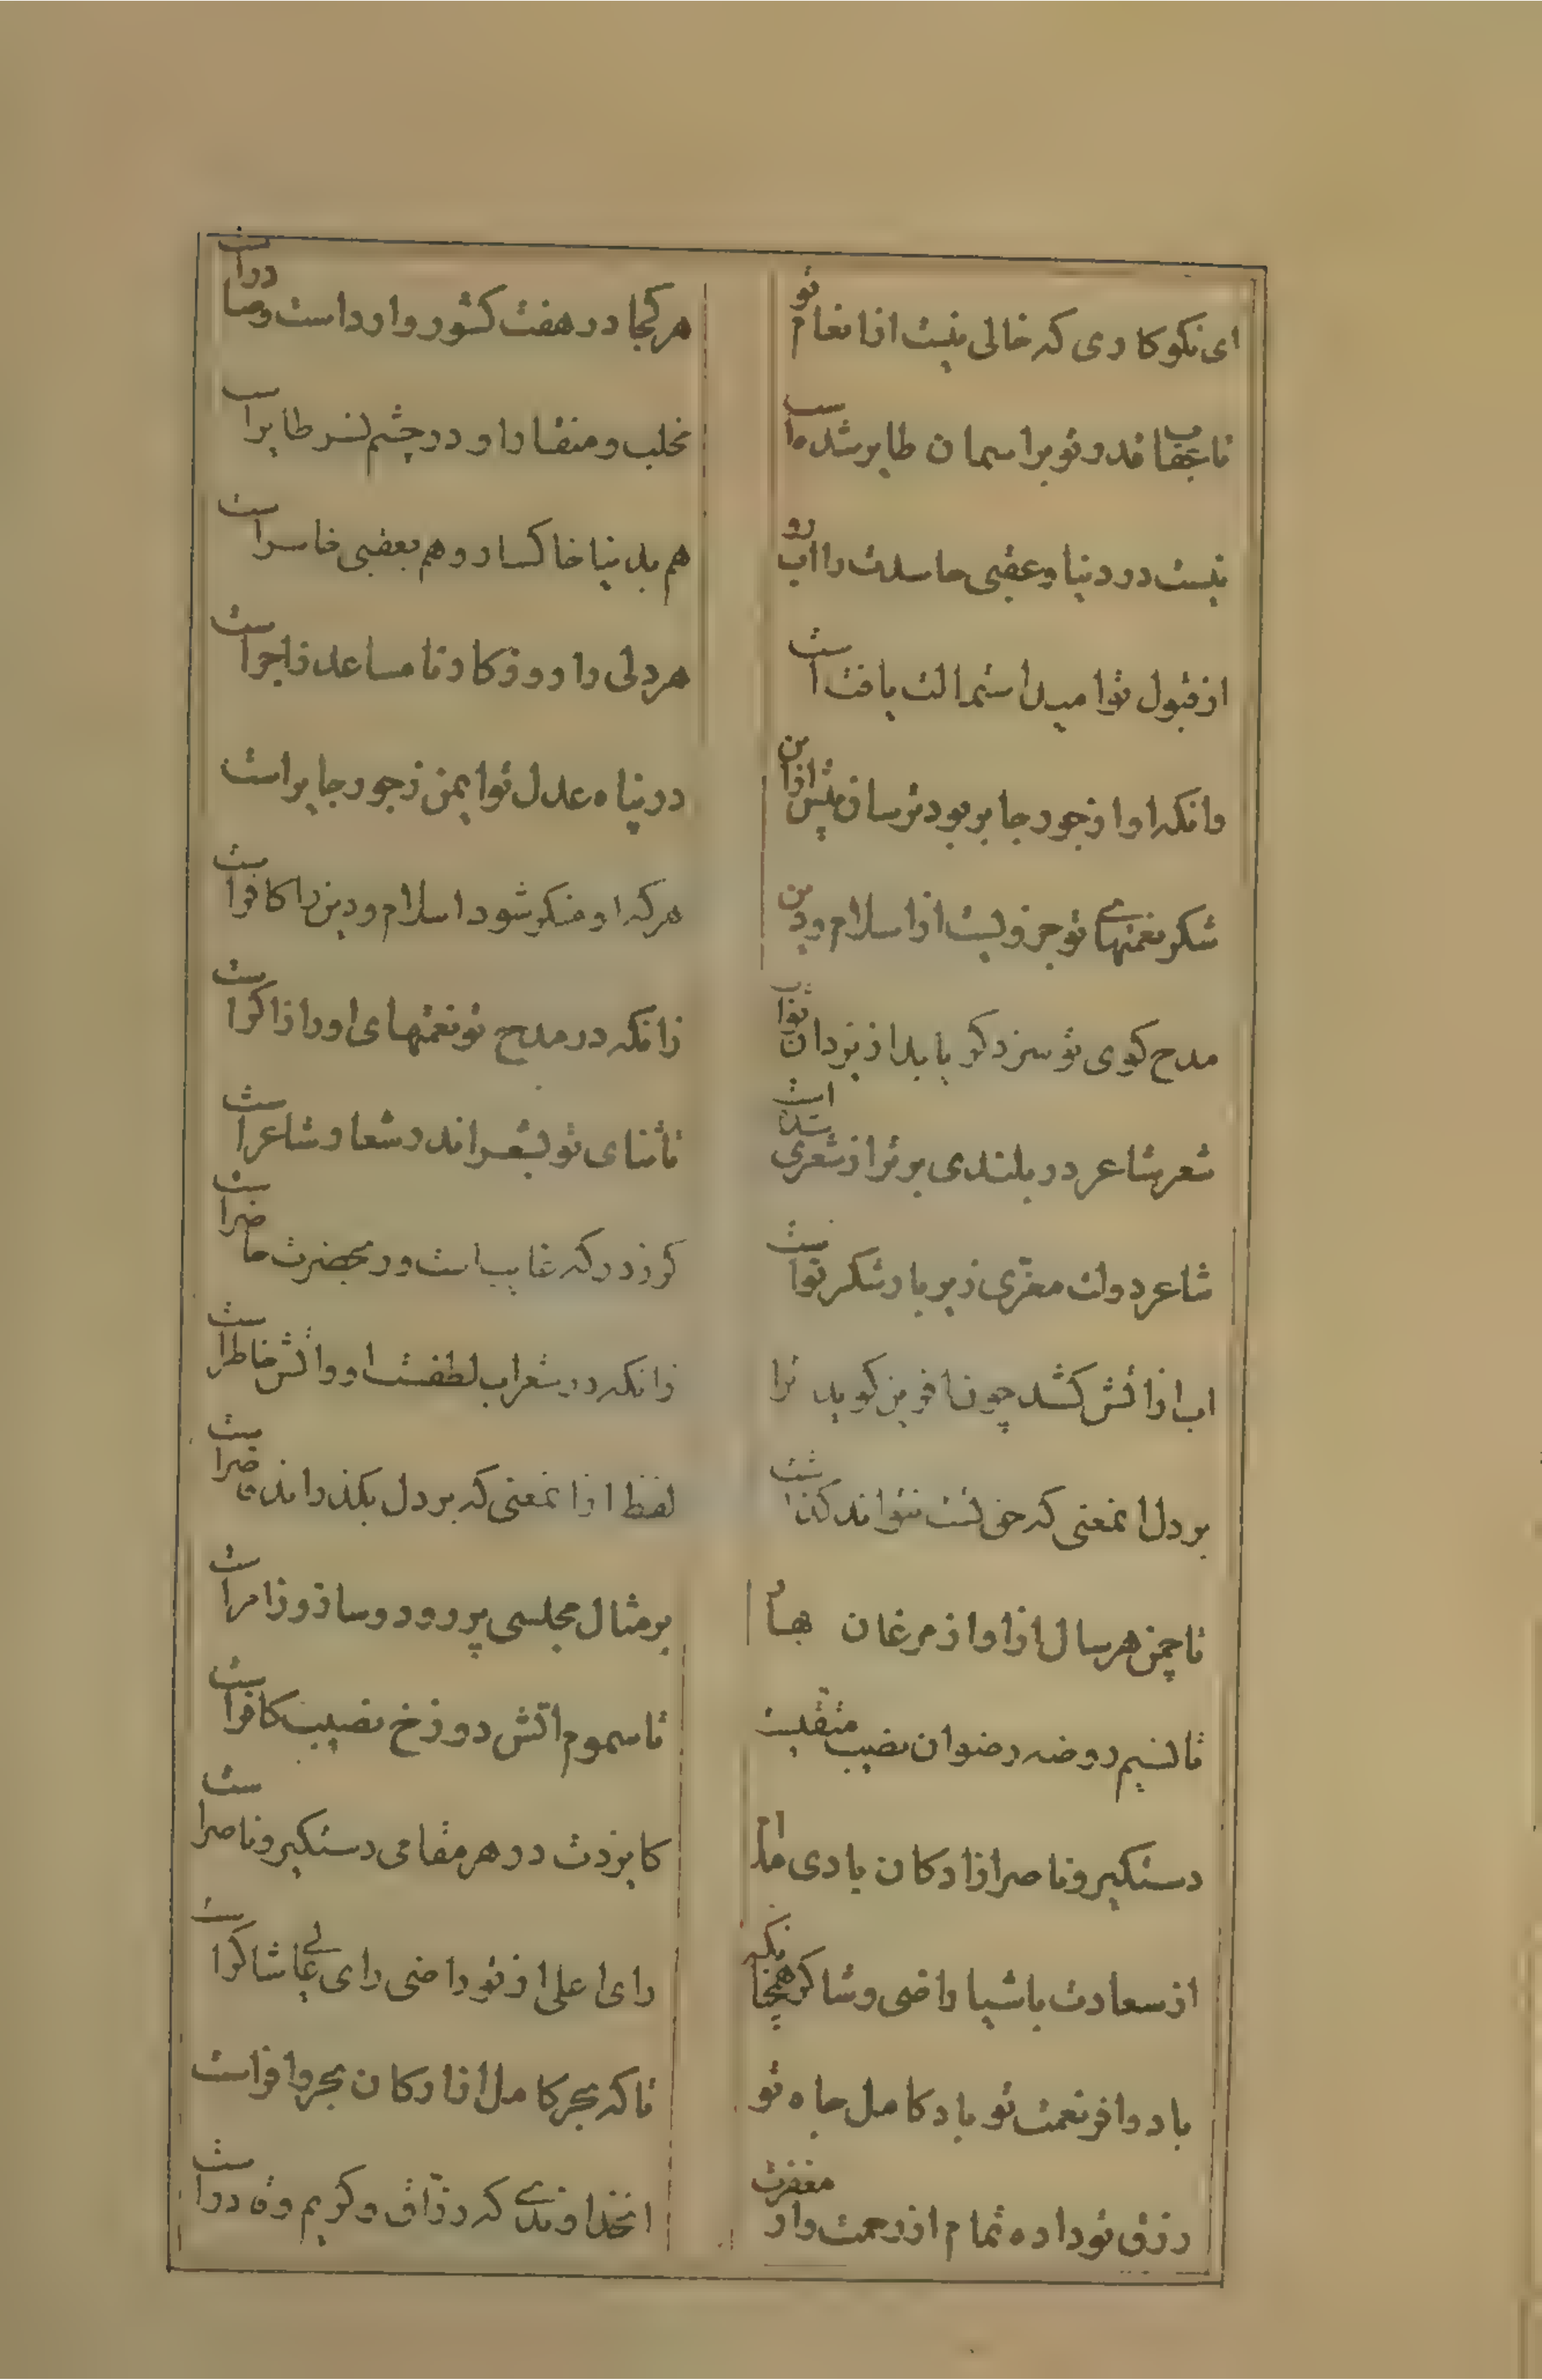 ای نکوکاری که خالی نیست از انعام تو
هر کجا در هفت کشور وارد است و صادر است
تا عقاب قدر تو بر آسمان طایر شده است
مخلب و منقار او در چشم نسر طایر است
نیست در دنیا و عقبی حاسدت را آب رو
هم بدنیا خاکسار و هم بعقبی خاسر است
از قبول تو امید استمالت یافت است
هر دلی را روزگار نامساعد زاجر است
وانکه او از جور جابر بود ترسان پیش ازین
در پناه عدل تو ایمن ز جور جابر است
شکر نعمتهای تو جزویست از اسلام و دین
هر که او منکر شود اسلام و دین را کافر است
مدح کوی تو سزد کر یابد از یزدان ثواب
زانکه در مدح تو نعمتهای او را ذاکر است
شعر شاعر در بلندی برتر از شعری شد است
تا ثنای تو بشعر اندر شعار شاعر است
شاعر دولت معزی زیر بار شکر تواست
کر ز درکه غایب است ور بحضرت حاضر است
آب از آتش کشد چون آفرین کوید ترا
زانکه در شعر آب لطفست او و آتش خاطر است
بر دل آنمعنی که حق تست نتواند کذشت
لفظ از آنمعنی که بر دل بکذراند قاصر است
تا چمن هر سال از آواز مرغان بهار
بر مثال مجلسی پر رود و ساز و زامر است
تا نسیم روضه رضوان نصیب متقیست
تا سموم آتش دوزخ نصیب کافر است
دستکیر و ناصر آزادکان بادی مدام
کایزدت در هر مقامی دستکیر و ناصر است
از سعادت باشیا راضی و شاکر همچنانکه
رای اعلی از تو راضی رای عالی شاکر است
باد وافر نعمت تو باد کامل جاه تو
تا که بحر کامل از ارکان بحر وافر است
رزق تو داده تمام از رحمت و از مغفرت
آنخداوندی که رزاق و کریم و قادر است